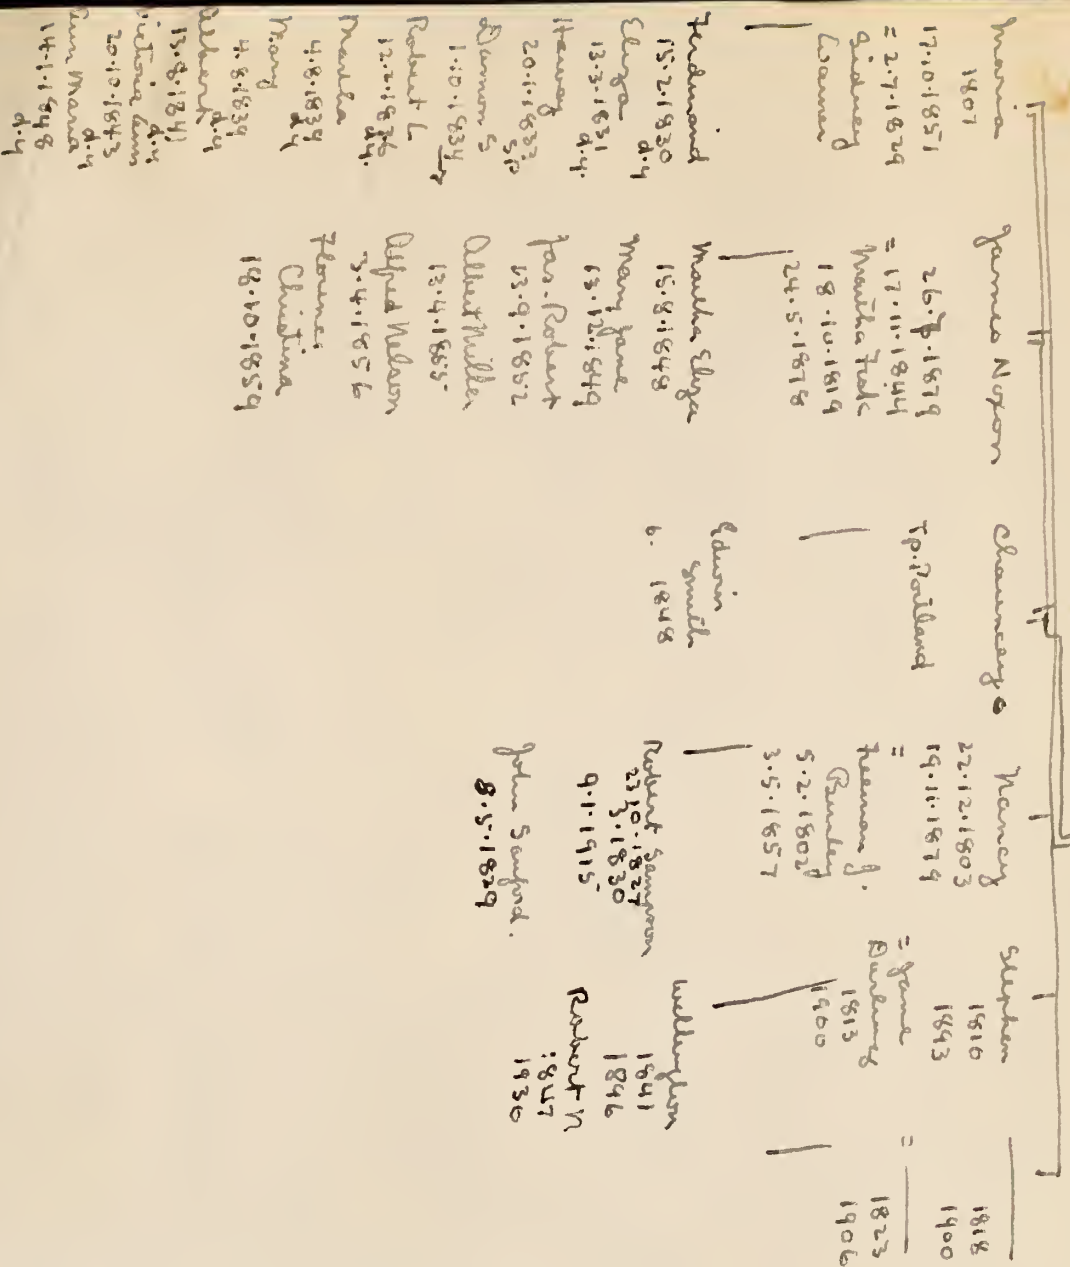 Maria
1807
17.10.1851
= 2.7.1829
Sidney
Warner
Ferdinand
15.2.1830
Eliza d.y
13.3.1831
d.y.
Harvey
20.1.1833
S P
Damon S
1.10.1834
Robert L
12.2.1836
d.y.
Martha
4.8.1839
d.y
Mary
4.8.1839
d.y
Albert
13.9.1841
d.y
Ann
20.10.1843
d.y
Ann Maria
14.1.1848
d.y
James Noxon
1879
= 17.11.1844
Martha Fisk
18.10.1819
24.5.1878
Martha Eliza
15.8.1848
Mary Jane
13.12.1849
Jas. Robert
13.9.1852
Albert Miller
13.4.1855
Alfred Nelson
3.4.1856
Florence
Christina
18.10.1859
Chauncey
Tp. Portland
Edwin
Smith
b. 1848
Nancy
22.12.1803
19.11.1879
=
Freeman J.
Burley
5.2.1802
3.5.1857
Robert Sampson
23.10.1827
5.1830
9.1.1915
John Sanford.
8.5.1829
Stephen
1810
1893
= Jane
1813
1900
Wellington
1841
1846
Robert N
1847
1930
1818
1900
=
1823
1906